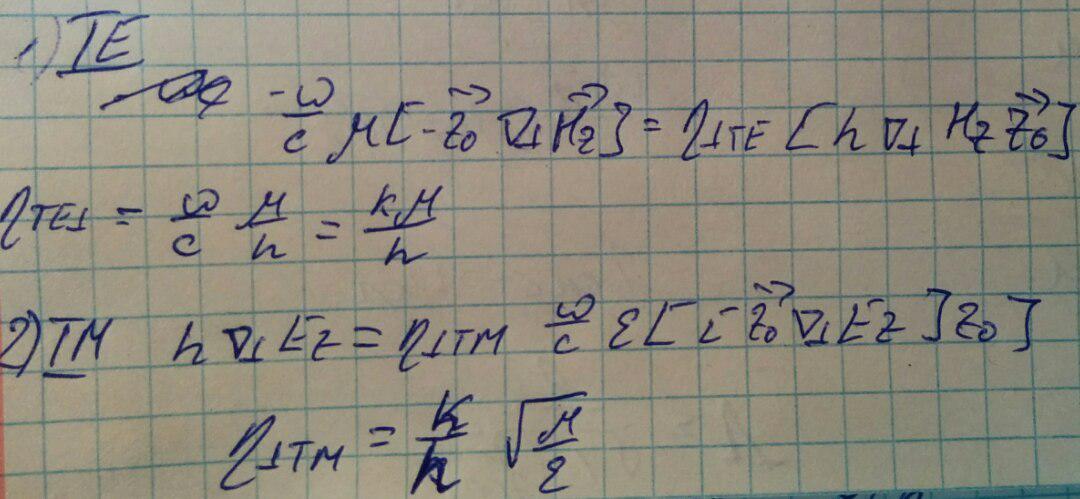 1) TE
-ω/c μ[-z₀⃗ ∇⊥H⃗z] = η⊥TE [h∇⊥ Hz z₀⃗]
ηTE⊥ = ω/c μ/h = kμ/h
2) TM h∇⊥Ez = η⊥TM ω/c ε[[z₀⃗∇⊥Ez]z₀]
η⊥TM = k/h √(μ/ε)